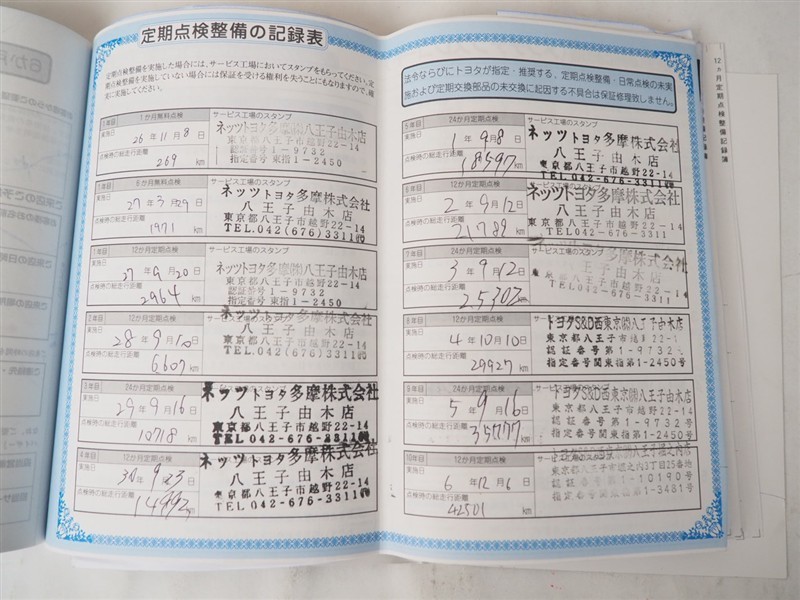 定期点検整備の記録表
定期点検整備を実施した場合には、サービス工場においてスタンプをもらってください。定
期点検整備を実施していない場合には保証を受ける権利を失うことにもなりますので、確
実に実施してください。
1年目 1か月無料点検 サービス工場のスタンプ
実施日 26年11月8日
点検時の総走行距離
269 km
ネッツトヨタ多摩㈱八王子由木店
東京都八王子市越野22-14
認証番号 1-9732
指定番号 東指1-2450
1年目 6か月無料点検 サービス工場のスタンプ
実施日 27年3月29日
点検時の総走行距離
1971 km
ネッツトヨタ多摩株式会社
八王子由木店
東京都八王子市越野22-14
TEL.042(676)3311㈹
1年目 12か月定期点検 サービス工場のスタンプ
実施日 27年9月20日
点検時の総走行距離
2964 km
ネッツトヨタ多摩㈱八王子由木店
東京都八王子市越野22-14
認証番号 1-9732
指定番号 東指1-2450
2年目 12か月定期点検
実施日 28年9月10日
点検時の総走行距離
6607 km
ネッツトヨタ多摩株式会社
八王子由木店
東京都八王子市越野22-14
TEL.042(676)3311㈹
3年目 24か月定期点検 サービス工場のスタンプ
実施日 29年9月16日
点検時の総走行距離
10718 km
ネッツトヨタ多摩株式会社
八王子由木店
東京都八王子市越野22-14
TEL.042-676-3311
4年目 12か月定期点検
実施日 30年9月23日
点検時の総走行距離
14992 km
ネッツトヨタ多摩株式会社
八王子由木店
東京都八王子市越野22-14
TEL.042-676-3311
法令ならびにトヨタが指定・推奨する、定期点検整備・日常点検の未実
施および定期交換部品の未交換に起因する不具合は保証修理致しません。
5年目 24か月定期点検 サービス工場のスタンプ
実施日 1年9月8日
点検時の総走行距離
18597 km
ネッツトヨタ多摩株式会社
八王子由木店
東京都八王子市越野22-14
TEL.042-676-3311
6年目 12か月定期点検
実施日 2年9月12日
点検時の総走行距離
21789 km
ネッツトヨタ多摩株式会社
八王子由木店
東京都八王子市越野22-14
TEL.042-676-3311
7年目 24か月定期点検 サービス工場のスタンプ
実施日 3年9月12日
点検時の総走行距離
25302 km
ネッツトヨタ多摩株式会社
八王子由木店
東京都八王子市越野22-14
TEL.042-676-3311
8年目 12か月定期点検
実施日 4年10月10日
点検時の総走行距離
29927 km
トヨタS&D西東京㈱八王子由木店
東京都八王子市越野22-14
認証番号第1-9732号
指定番号関東指第1-2450号
9年目 24か月定期点検
実施日 5年9月16日
点検時の総走行距離
km
トヨタS&D西東京㈱八王子由木店
東京都八王子市越野22-14
認証番号第1-9732号
指定番号関東指第1-2450号
10年目 12か月定期点検 サービス工場のスタンプ
実施日 6年12月6日
点検時の総走行距離
42501 km
東京都八王子市堀之内3丁目25番地
認証番号第1-10190号
指定番号関東指第1-3481号
12ヵ月定期点検整備記録簿